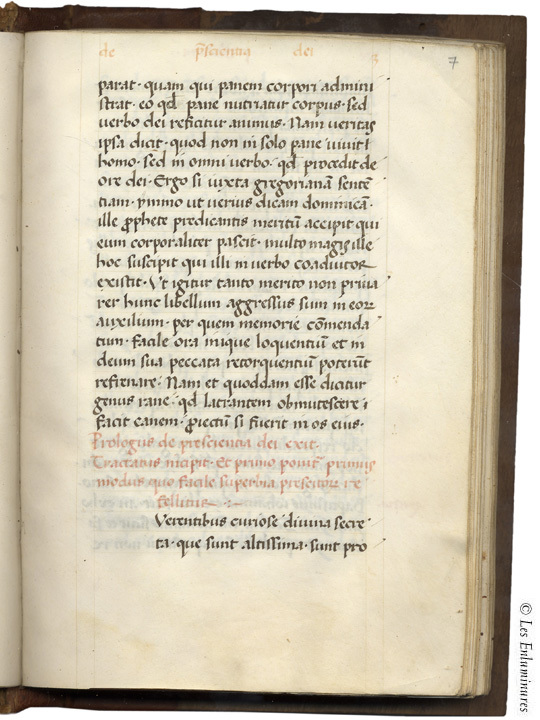 de p̄scientia dei 3
7
parat · quam qui panem corpori admini
strat · eo qd̄ pane nutriatur corpus · sed
verbo dei reficitur animus · Nam veritas
ipsa dicit · quod non in solo pane vivit
homo · sed in omni verbo · qd̄ procedit de
ore dei · Ergo si iuxta gregorianā sentē
tiam · ymmo ut verius dicam dominicā ·
ille ꝓphete predicantis meritū accipit qui
eum corporaliter pascit · multo magis ille
hoc suscipit qui illi in verbo coadiutor
existit · Ut igitur tanto merito non priva
rer hunc libellum aggressus sum in eoꝝ
auxilium · per quem memorie cōmenda
tum · facile ora inique loquentiū et in
deum sua peccata retorquentiū poterūt
refrenare · Nam et quoddam esse dicitur
genus rane · qd̄ latrantem obmutescere
facit canem · ꝓiectū si fuerit in os eius ·
Prologus de presciencia dei exit ·
Tractatus incipit · Et primo ponit̄ primus
modus quo facile superbia prescitoꝝ re
fellitur
Verentibus curiose divina secre
ta · que sunt altissima · sunt pro
© Les Enluminures